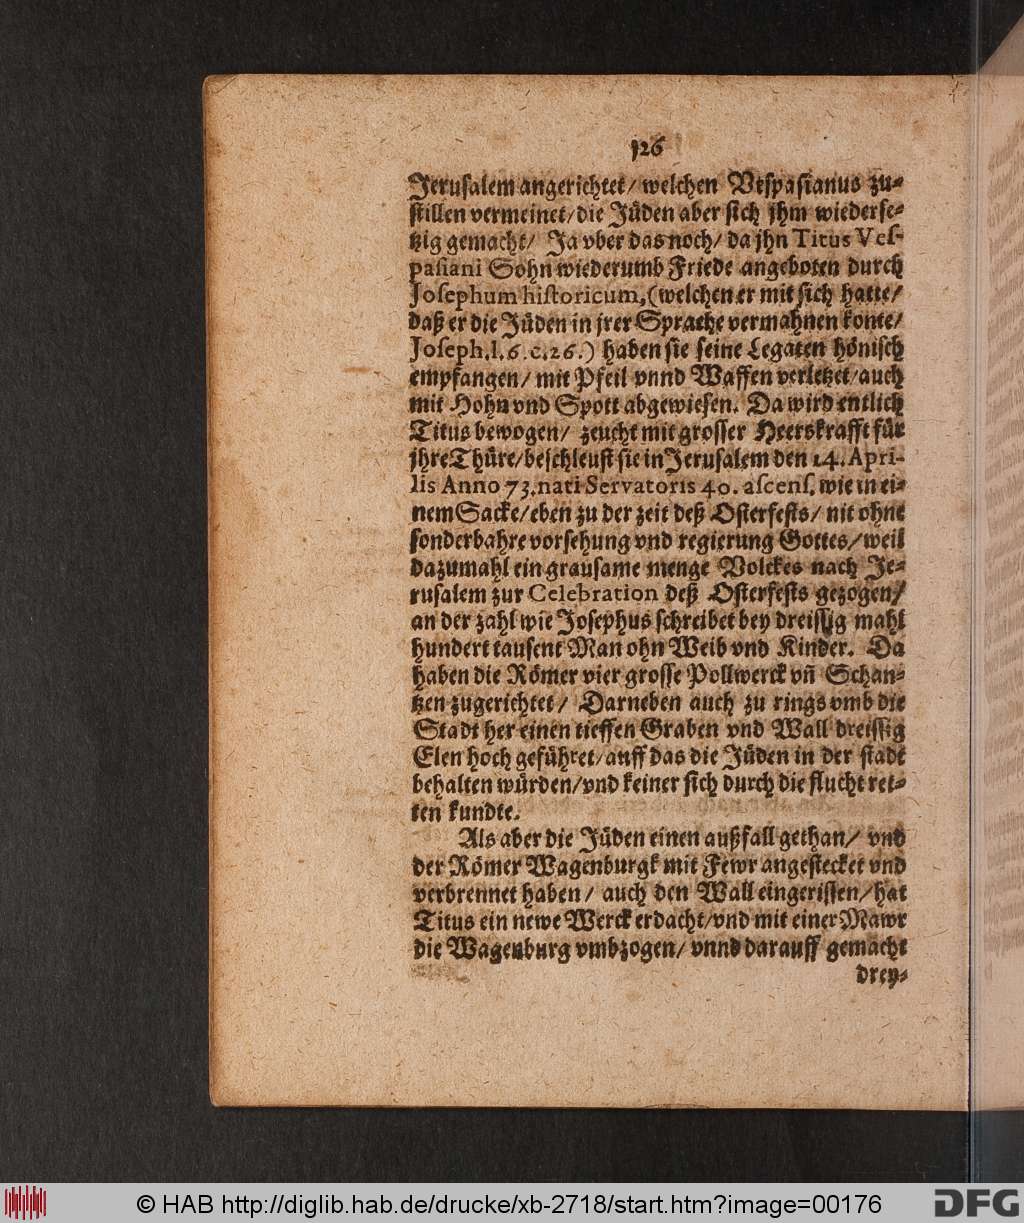 126
Jerusalem angerichtet/ welchen Vespasianus zu-
stillen vermeinet/ die Jüden aber sich jhm wiederse-
tzig gemacht/ Ja vber das noch/ da jhn Titus Ves-
pasiani Sohn wiederumb Friede angeboten durch
Josephum historicum, (welchen er mit sich hatte/
daß er die Jüden in jrer Sprache vermahnen konte/
Joseph. l. 6. c. 26.) haben sie seine Legaten hönisch
empfangen/ mit Pfeil vnnd Waffen verletzet/ auch
mit Hohn vnd Spott abgewiesen. Da wird entlich
Titus bewogen/ zeucht mit grosser Heerskrafft für
jhre Thüre/ beschleust sie in Jerusalem den 14. Apri-
lis Anno 73. nati Servatoris 40. ascens. wie in ei-
nem Sacke/ eben zu der zeit deß Osterfests/ nit ohne
sonderbahre vorsehung vnd regierung Gottes/ weil
dazumahl ein grausame menge Volckes nach Je-
rusalem zur Celebration deß Osterfests gezogen/
an der zahl wie Josephus schreibet bey dreissig mahl
hundert tausent Man ohn Weib vnd Kinder. Da
haben die Römer vier grosse Pollwerck vñ Schan-
tzen zugerichtet/ Darneben auch zu rings vmb die
Stadt her einen tieffen Graben vnd Wall dreissig
Elen hoch geführet/ auff das die Jüden in der stadt
behalten würden/ vnd keiner sich durch die flucht ret-
ten kundte.
Als aber die Jüden einen außfall gethan/ vnd
der Römer Wagenburgk mit Fewr angestecket vnd
verbrennet haben/ auch den Wall eingerissen/ hat
Titus ein newe Werck erdacht/ vnd mit einer Mawr
die Wagenburg vmbzogen/ vnnd darauff gemacht
drey-
© HAB http://diglib.hab.de/drucke/xb-2718/start.htm?image=00176
DFG